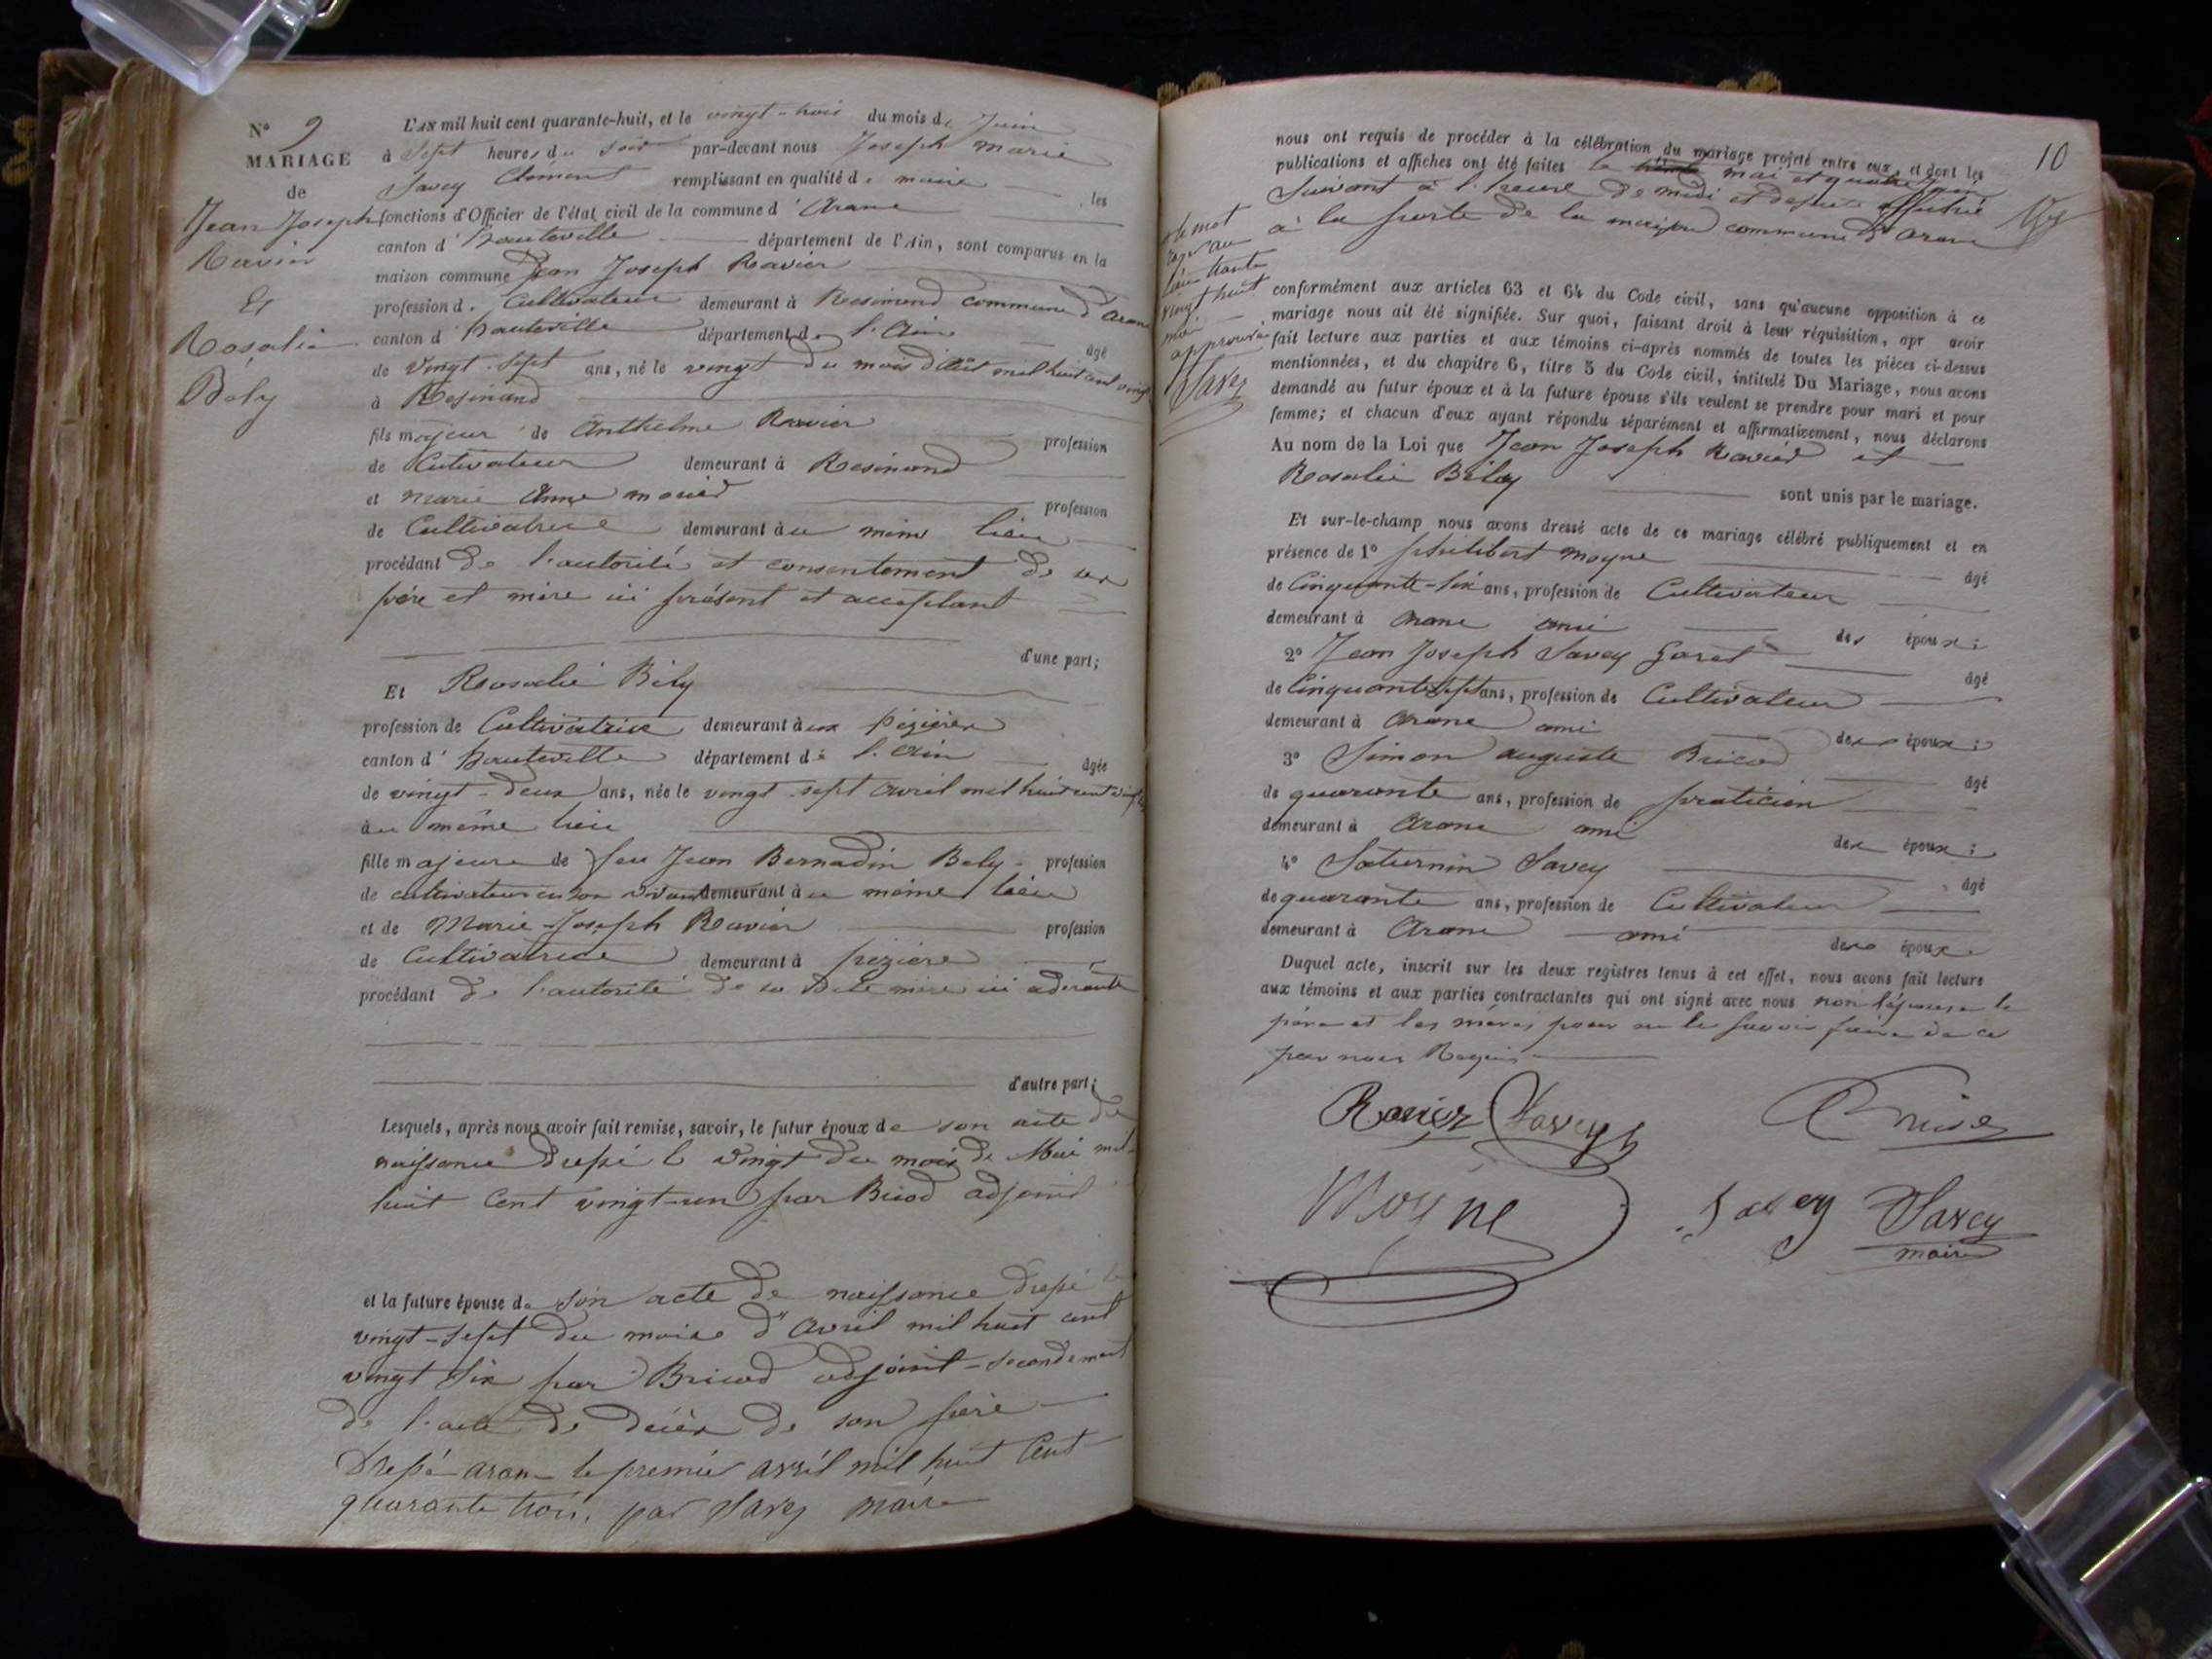 N° 9
MARIAGE
de
Jean Joseph
Ravier
Et
Rosalie
Bély
L'AN mil huit cent quarante-huit, et le vingt-trois du mois de Juin
à Sept heures du soir par-devant nous Joseph marie
Savey Clément remplissant en qualité de maire les
fonctions d'Officier de l'état civil de la commune d'Arane
canton d'hauteville département de l'Ain, sont comparus en la
maison commune Jean Joseph Ravier
profession de Cultivateur demeurant à Resinand commune d'arane
canton d'hauteville département de l'Ain âgé
de vingt-sept ans, né le vingt du mois mil huit cent vingt
à Resinand
fils majeur de Anthelme Ravier profession
de Cutivateur demeurant à Resinand
et marie Anne profession
de Cultivatrice demeurant au même lieu
procédant de l'autorité et consentement de ses
père et mère ici présent et acceptant
d'une part;
Et Rosalie Bély
profession de Cultivatrice demeurant aux pézières
canton d'hauteville département de l'Ain âgée
de vingt-deux ans, née le vingt-sept avril mil huit cent
au même lieu
fille majeure de feu Jean Bernadin Bely profession
de cultivateur en son vivant demeurant au même lieu
et de Marie-Joseph Ravier profession
de Cultivatrice demeurant à pézière
procédant de l'autorité de sa dite mère ici adérante
d'autre part;
Lesquels, après nous avoir fait remise, savoir, le futur époux de son acte de
naissance dressé le vingt du mois de mil
huit cent vingt-un par Bricod adjoint
et la future épouse de son acte de naissance dressé le
vingt-sept du mois d'avril mil huit cent
vingt six par Bricod adjoint - secondement
de l'acte de décès de son père
Dressé aran le premier avril mil huit Cent
quarante trois, par Savey maire
10
nous ont requis de procéder à la célébration du mariage projeté entre eux, et dont les
publications et affiches ont été faites le mai et quatre juin
suivant à l'heure de midi et
à la porte de la maison commune d'arane
le mot
rayé au
trente
vingt huit
mai
approuvé
Savey
conformément aux articles 63 et 64 du Code civil, sans qu'aucune opposition à ce
mariage nous ait été signifiée. Sur quoi, faisant droit à leur réquisition, apr avoir
fait lecture aux parties et aux témoins ci-après nommés de toutes les pièces ci-dessus
mentionnées, et du chapitre 6, titre 5 du Code civil, intitulé Du Mariage, nous avons
demandé au futur époux et à la future épouse s'ils veulent se prendre pour mari et pour
femme; et chacun d'eux ayant répondu séparément et affirmativement, nous déclarons
Au nom de la Loi que Jean Joseph Ravier et
Rosalie Bély sont unis par le mariage.
Et sur-le-champ nous avons dressé acte de ce mariage célébré publiquement et en
présence de 1° philibert moyne âgé
de Cinquante-six ans, profession de Cultivateur
demeurant à Arane ami des époux;
2° Jean Joseph Savey âgé
de Cinquante sept ans, profession de Cultivateur
demeurant à Arane ami des époux;
3° Simon auguste Bricod âgé
de quarante ans, profession de praticien
demeurant à Arane ami des époux;
4° Saturnin Savey âgé
de quarante ans, profession de Cultivateur
demeurant à Arane ami des époux
Duquel acte, inscrit sur les deux registres tenus à cet effet, nous avons fait lecture
aux témoins et aux parties contractantes qui ont signé avec nous non l'épouse le
père et les mères pour ne le savoir faire de ce
par nous Requis
Ravier Savey
Moyne
Savey Savey
maire